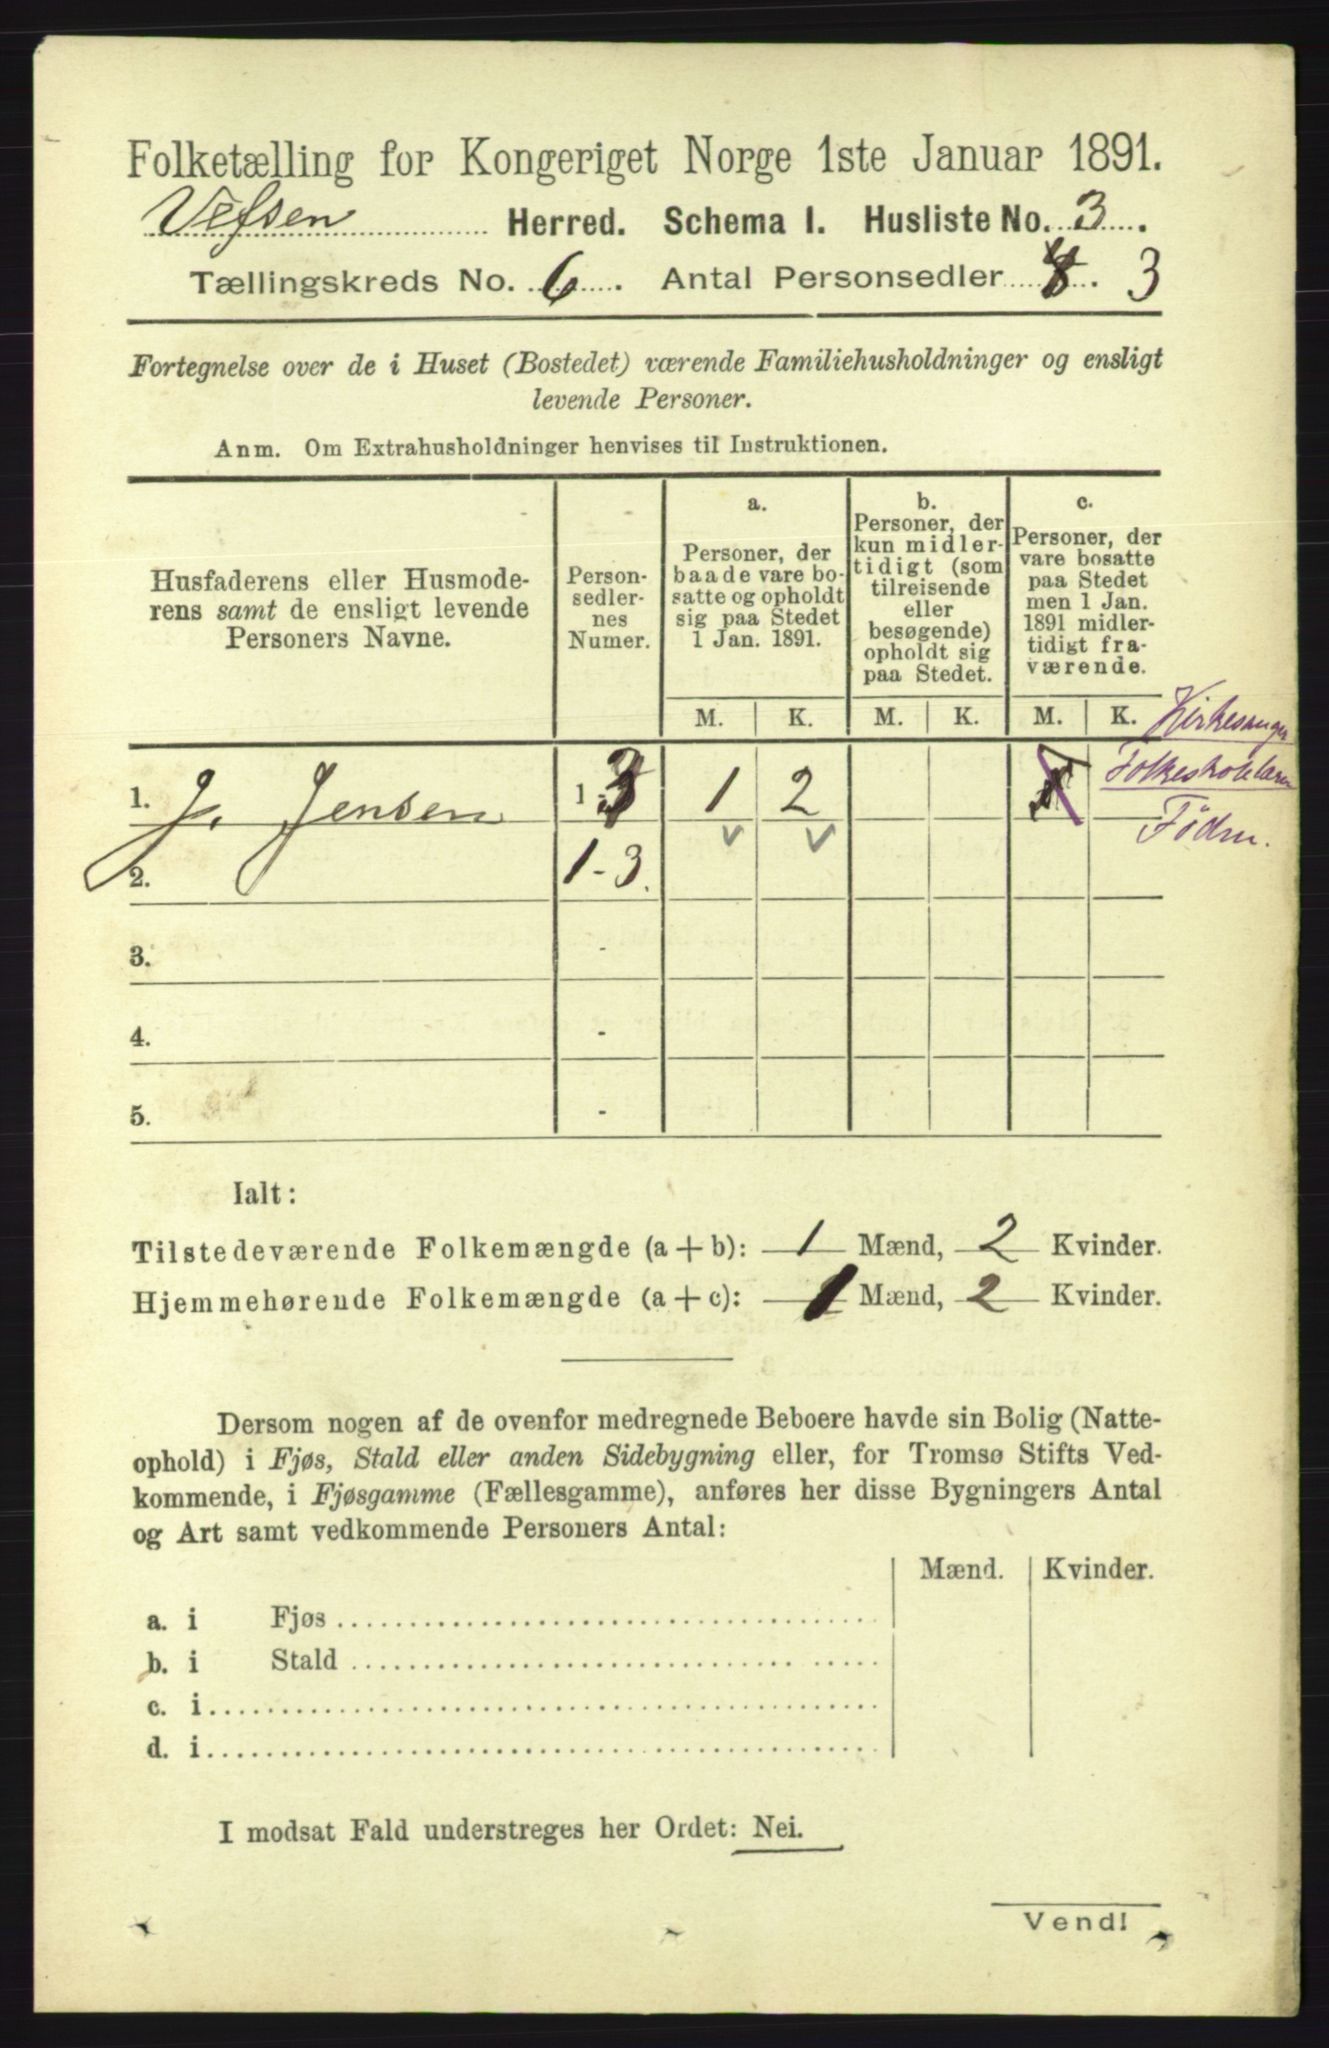 Folketælling for Kongeriget Norge 1ste Januar 1891.
Vefsen Herred. Schema I. Husliste No. 3.
Tællingskreds No. 6. Antal Personsedler 8. 3
Fortegnelse over de i Huset (Bostedet) værende Familiehusholdninger og ensligt
levende Personer.
Anm. Om Extrahusholdninger henvises til Instruktionen.
Husfaderens eller Husmode-
rens samt de ensligt levende
Personers Navne.
Person-
sedler-
nes
Numer.
a.
Personer, der
baade vare bo-
satte og opholdt
sig paa Stedet
1 Jan. 1891.
b.
Personer, der
kun midler-
tidigt (som
tilreisende
eller
besøgende)
opholdt sig
paa Stedet.
c.
Personer, der
vare bosatte
paa Stedet
men 1 Jan.
1891 midler-
tidigt fra-
værende.
M. K. M. K. M. K.
Kirkesanger
1. J. Jensen 1-3 1 2
Folkeskolelærer
Födm.
2. 1-3.
3. -
4. -
5. -
Ialt:
Tilstedeværende Folkemængde (a+b): 1 Mænd, 2 Kvinder.
Hjemmehørende Folkemængde (a+c): 1 Mænd, 2 Kvinder.
Dersom nogen af de ovenfor medregnede Beboere havde sin Bolig (Natte-
ophold) i Fjøs, Stald eller anden Sidebygning eller, for Tromsø Stifts Ved-
kommende, i Fjøsgamme (Fællesgamme), anføres her disse Bygningers Antal
og Art samt vedkommende Personers Antal:
Mænd. Kvinder.
a. i Fjøs
b. i Stald
c. i
d. i
I modsat Fald understreges her Ordet: Nei.
Vend!